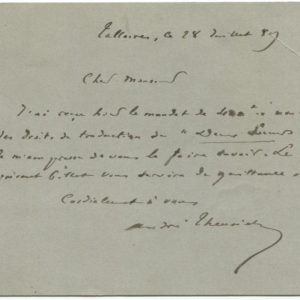 Talloires, ce 28 Juillet 89
Cher Monsieur
J'ai reçu hier le mandat de
des droits de traduction de "Deux Soeurs
Je m'empresse de vous le faire savoir. Le
présent billet vous servira de quittance
Cordialement à vous
André Theuriet